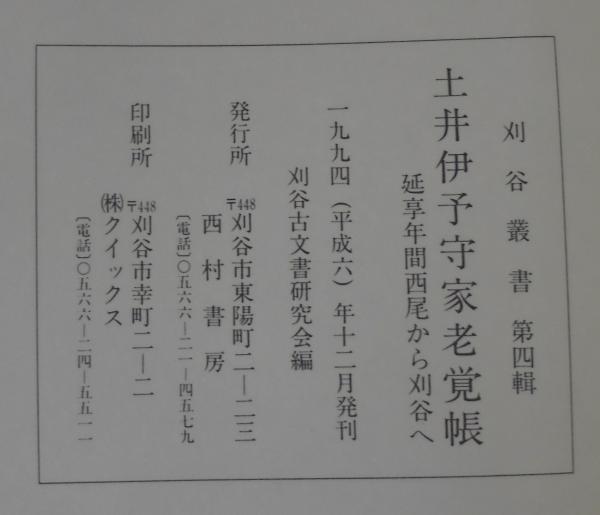 刈谷叢書 第四輯
土井伊予守家老覚帳
延享年間西尾から刈谷へ
一九九四(平成六)年十二月発刊
刈谷古文書研究会編
発行所 〒448刈谷市東陽町二―二三
西村書房
〔電話〕〇五六六―二一―四五七九
印刷所 〒448刈谷市幸町二―二
㈱クイックス
〔電話〕〇五六六―二四―五五一一